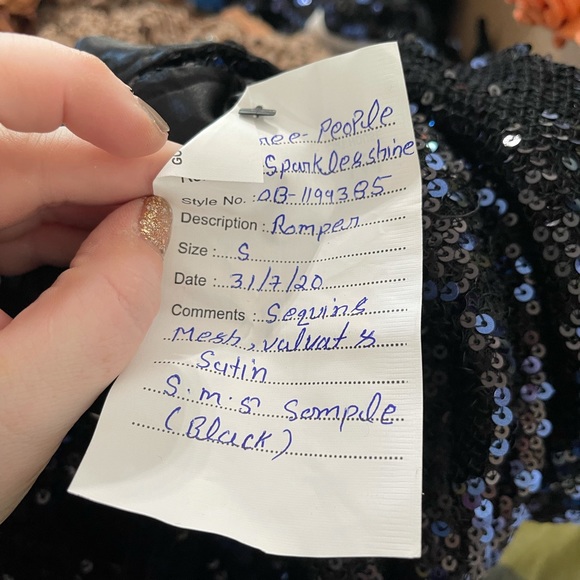 ree- People
Sparkle & shine
Style No. : OB-1199385
Description : Romper
Size : S
Date : 31/7/20
Comments : Sequins
Mesh, valvat &
Satin
S.m.s Sample
(Black)